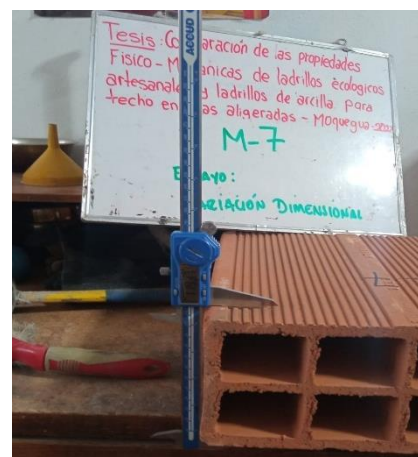 ACCUD
Tesis: Co aración de las propiedades
Físico - M ánicas de ladrillos ecologicos
artesanal y ladrillos de arcilla para
techo en as aligeradas - Moquegua
M-7
E AYO:
ARIACIÓN DIMENSIONAL